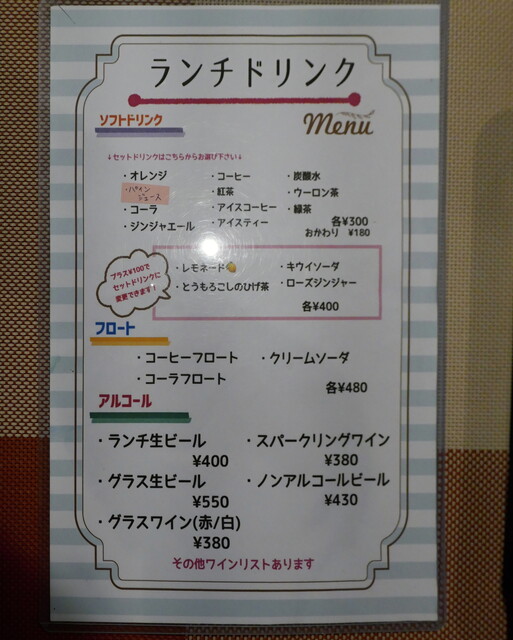 ランチドリンク
ソフトドリンク
Menu
↓セットドリンクはこちらからお選び下さい↓
・オレンジ ・コーヒー ・炭酸水
・パイン ジュース ・紅茶 ・ウーロン茶
・コーラ ・アイスコーヒー ・緑茶
・ジンジャエール ・アイスティー 各¥300
おかわり ¥180
プラス¥100で
セットドリンクに
変更できます!
・レモネード🍋 ・キウイソーダ
・とうもろこしのひげ茶 ・ローズジンジャー
各¥400
フロート
・コーヒーフロート ・クリームソーダ
・コーラフロート
各¥480
アルコール
・ランチ生ビール ・スパークリングワイン
¥400 ¥380
・グラス生ビール ・ノンアルコールビール
¥550 ¥430
・グラスワイン(赤/白)
¥380
その他ワインリストあります